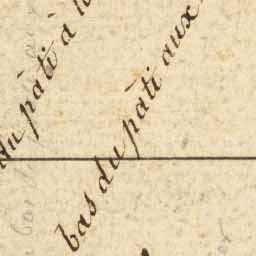 du pâti à
bas du pâti aux